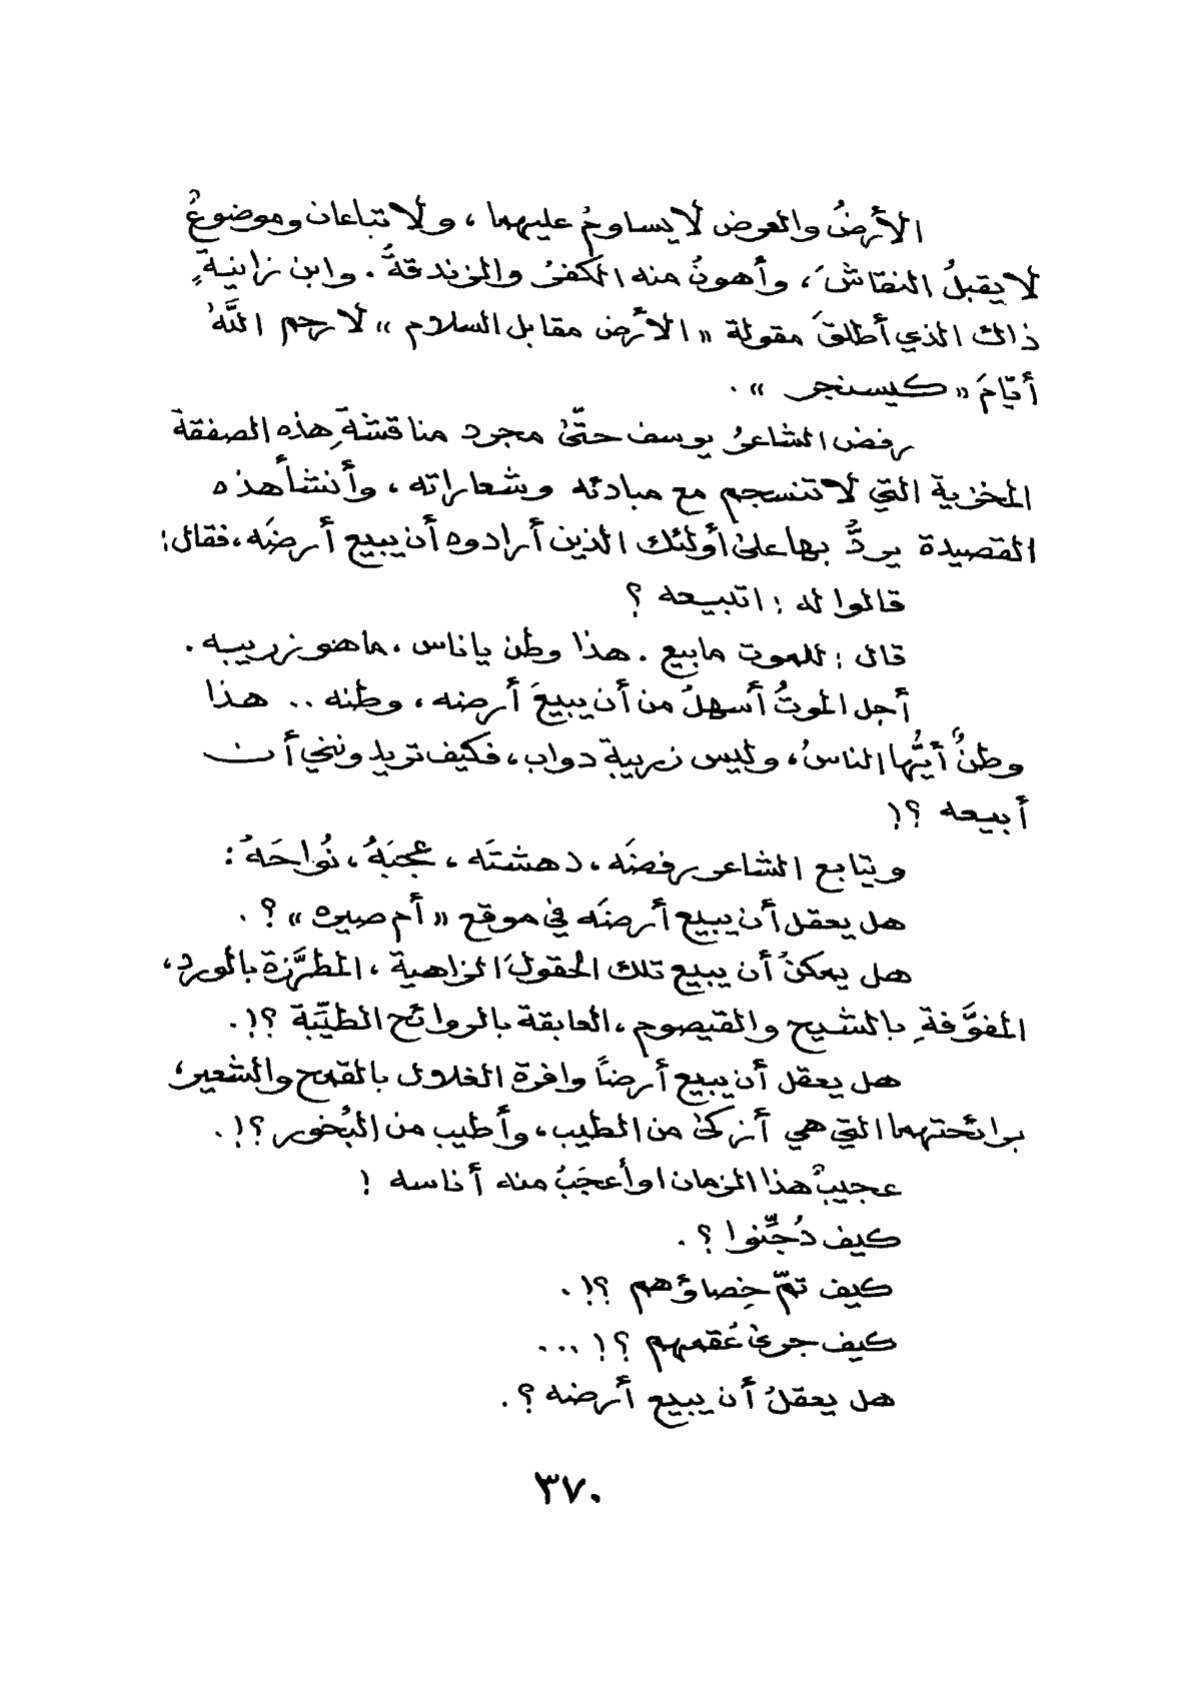 الأرضُ والعرض لا يساومُ عليهما ، ولا تباعان وموضوعٌ
لا يقبلُ النقاشَ ، وأهونُ منه الكفرُ والزندقةُ . وابن زانيةٍ
ذاك الذي أطلقَ مقولة « الأرض مقابل السلام » لا رحم اللَّهُ
أيّامَ « كيسنجر » .
رفض الشاعرُ يوسف حتّىٰ مجرد مناقشةَِ هذه الصفقة
المخزية التي لا تنسجم مع مبادئه وشعاراته ، وأنشأ هذه
القصيدة يردُّ بها علىٰ أولئك الذين أرادوه أن يبيع أرضَه ، فقال :
قالوا له : اتبيعه ؟
قال : للموت مابيع . هذا وطن ياناس ، ماهو زريبه .
أجل الموتُ أسهلُ من أن يبيعَ أرضه ، وطنه .. هذا
وطنٌ أيُّها الناسُ ، وليس زريبة دواب ، فكيف تريدونني أن
أبيعه ؟!
ويتابع الشاعر رفضَه ، دهشتَه ، عجبَهُ ، نُواحَهُ :
هل يعقل أن يبيع أرضَه في موقع « أم صيره » ؟ .
هل يمكنُ أن يبيع تلك الحقولَ الزاهية ، المطرَّزة بالورد ،
المفوَّفةِ بالشيح والقيصوم ، العابقة بالروائح الطيّبة ؟! .
هل يعقل أن يبيع أرضاً وافرة الغلال بالقمح والشعير ،
برائحتهما التي هي أزكىٰ من الطيب ، وأطيب من البُخور ؟! .
عجيبٌ هذا الزمان ! وأعجَبُ منه أناسه !
كيف دُجِّنوا ؟ .
كيف تمّ خِصاؤهم ؟! .
كيف جرىٰ عُقمهم ؟! ...
هل يعقلُ أن يبيع أرضه ؟ .
٣٧٠